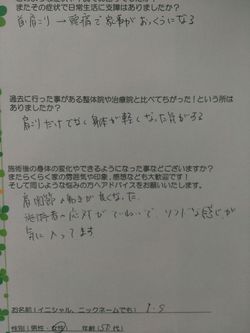 またその症状で日常生活に支障はありましたか？
首肩こり→頭痛で家事がおっくうになる
過去に行った事がある整体院や治療院と比べてちがった！という所は
ありましたか？
肩こりだけでなく身体が軽くなった気がする
施術後の身体の変化やできるようになった事などございますか？
またらくらく家の雰囲気や印象、感想なども大歓迎です！
そして同じような悩みの方へアドバイスをお願いいたします。
肩関節の動きが良くなった
施術者の応対がていねいで、ソフトな感じが
気に入ってます
お名前（イニシャル、ニックネームでも）
性別（男性・女性） 年齢（50代）